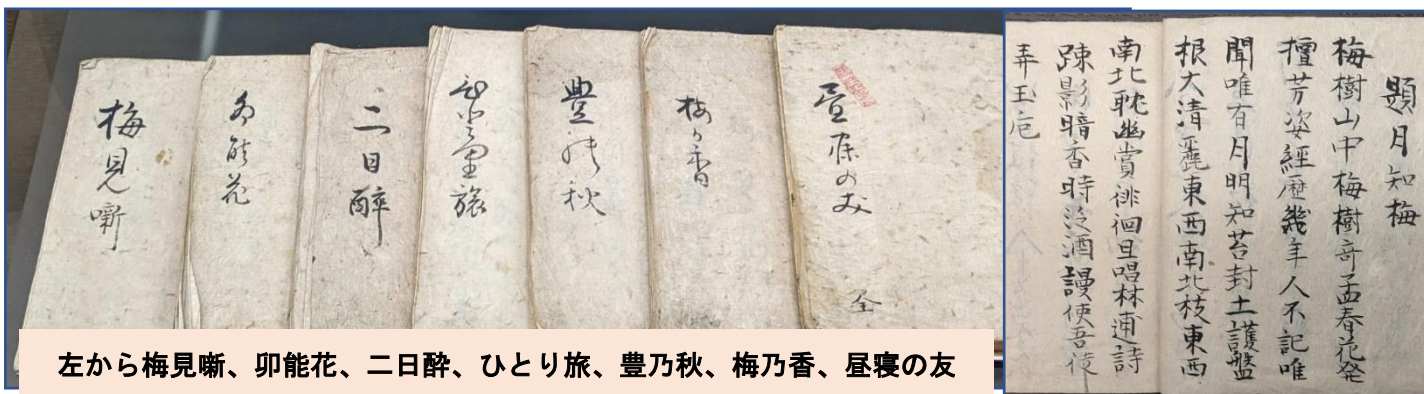 梅見噺
卯能花
二日醉
豊乃秋
梅か香
昼寐の友
全
左から梅見噺、卯能花、二日酔、ひとり旅、豊乃秋、梅乃香、昼寝の友
題月知梅
梅樹山中梅樹奇孟春花発
擅芳姿經歴幾年人不記唯
聞唯有月明知苔封土護盤
根大清麗東西南北枝東西
南北耽幽賞徘徊且唱林逋詩
踈影暗香時泛酒謾使吾儕
弄玉巵